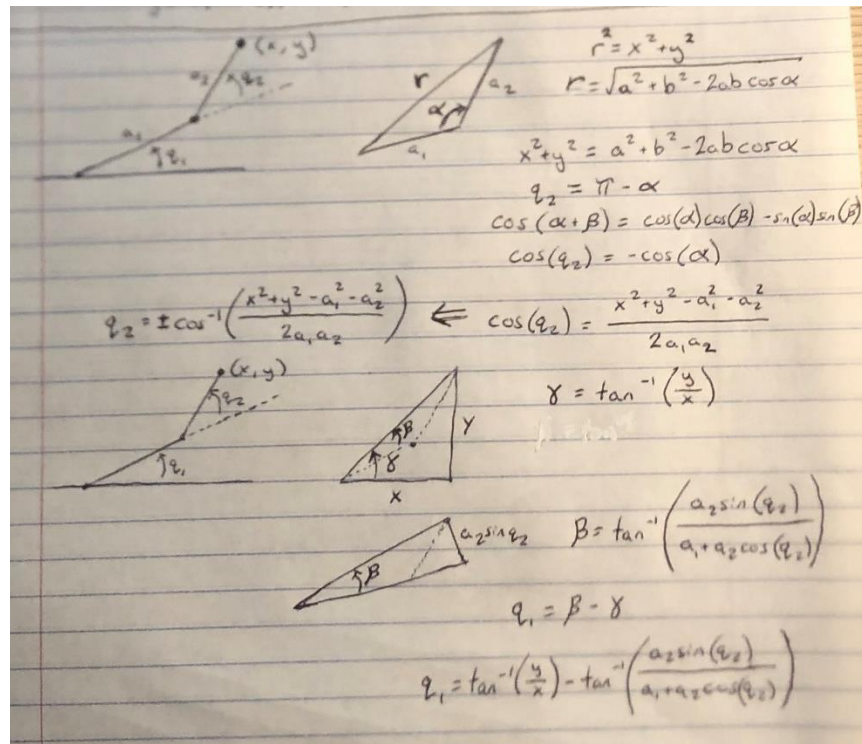 (x, y)
a₂ q₂
a₁
q₁
r
α
a₂
a₁
r² = x² + y²
r = √(a² + b² - 2ab cos α)
x² + y² = a² + b² - 2ab cos α
q₂ = π - α
cos(α + β) = cos(α)cos(β) - sin(α)sin(β)
cos(q₂) = -cos(α)
q₂ = ± cos⁻¹((x² + y² - a₁² - a₂²)/(2a₁a₂)) ⇐ cos(q₂) = (x² + y² - a₁² - a₂²)/(2a₁a₂)
(x, y)
q₂
q₁
β
γ
y
x
γ = tan⁻¹(y/x)
β
a₂ sin q₂
β = tan⁻¹((a₂ sin(q₂))/(a₁ + a₂ cos(q₂)))
q₁ = β - γ
q₁ = tan⁻¹(y/x) - tan⁻¹((a₂ sin(q₂))/(a₁ + a₂ cos(q₂)))